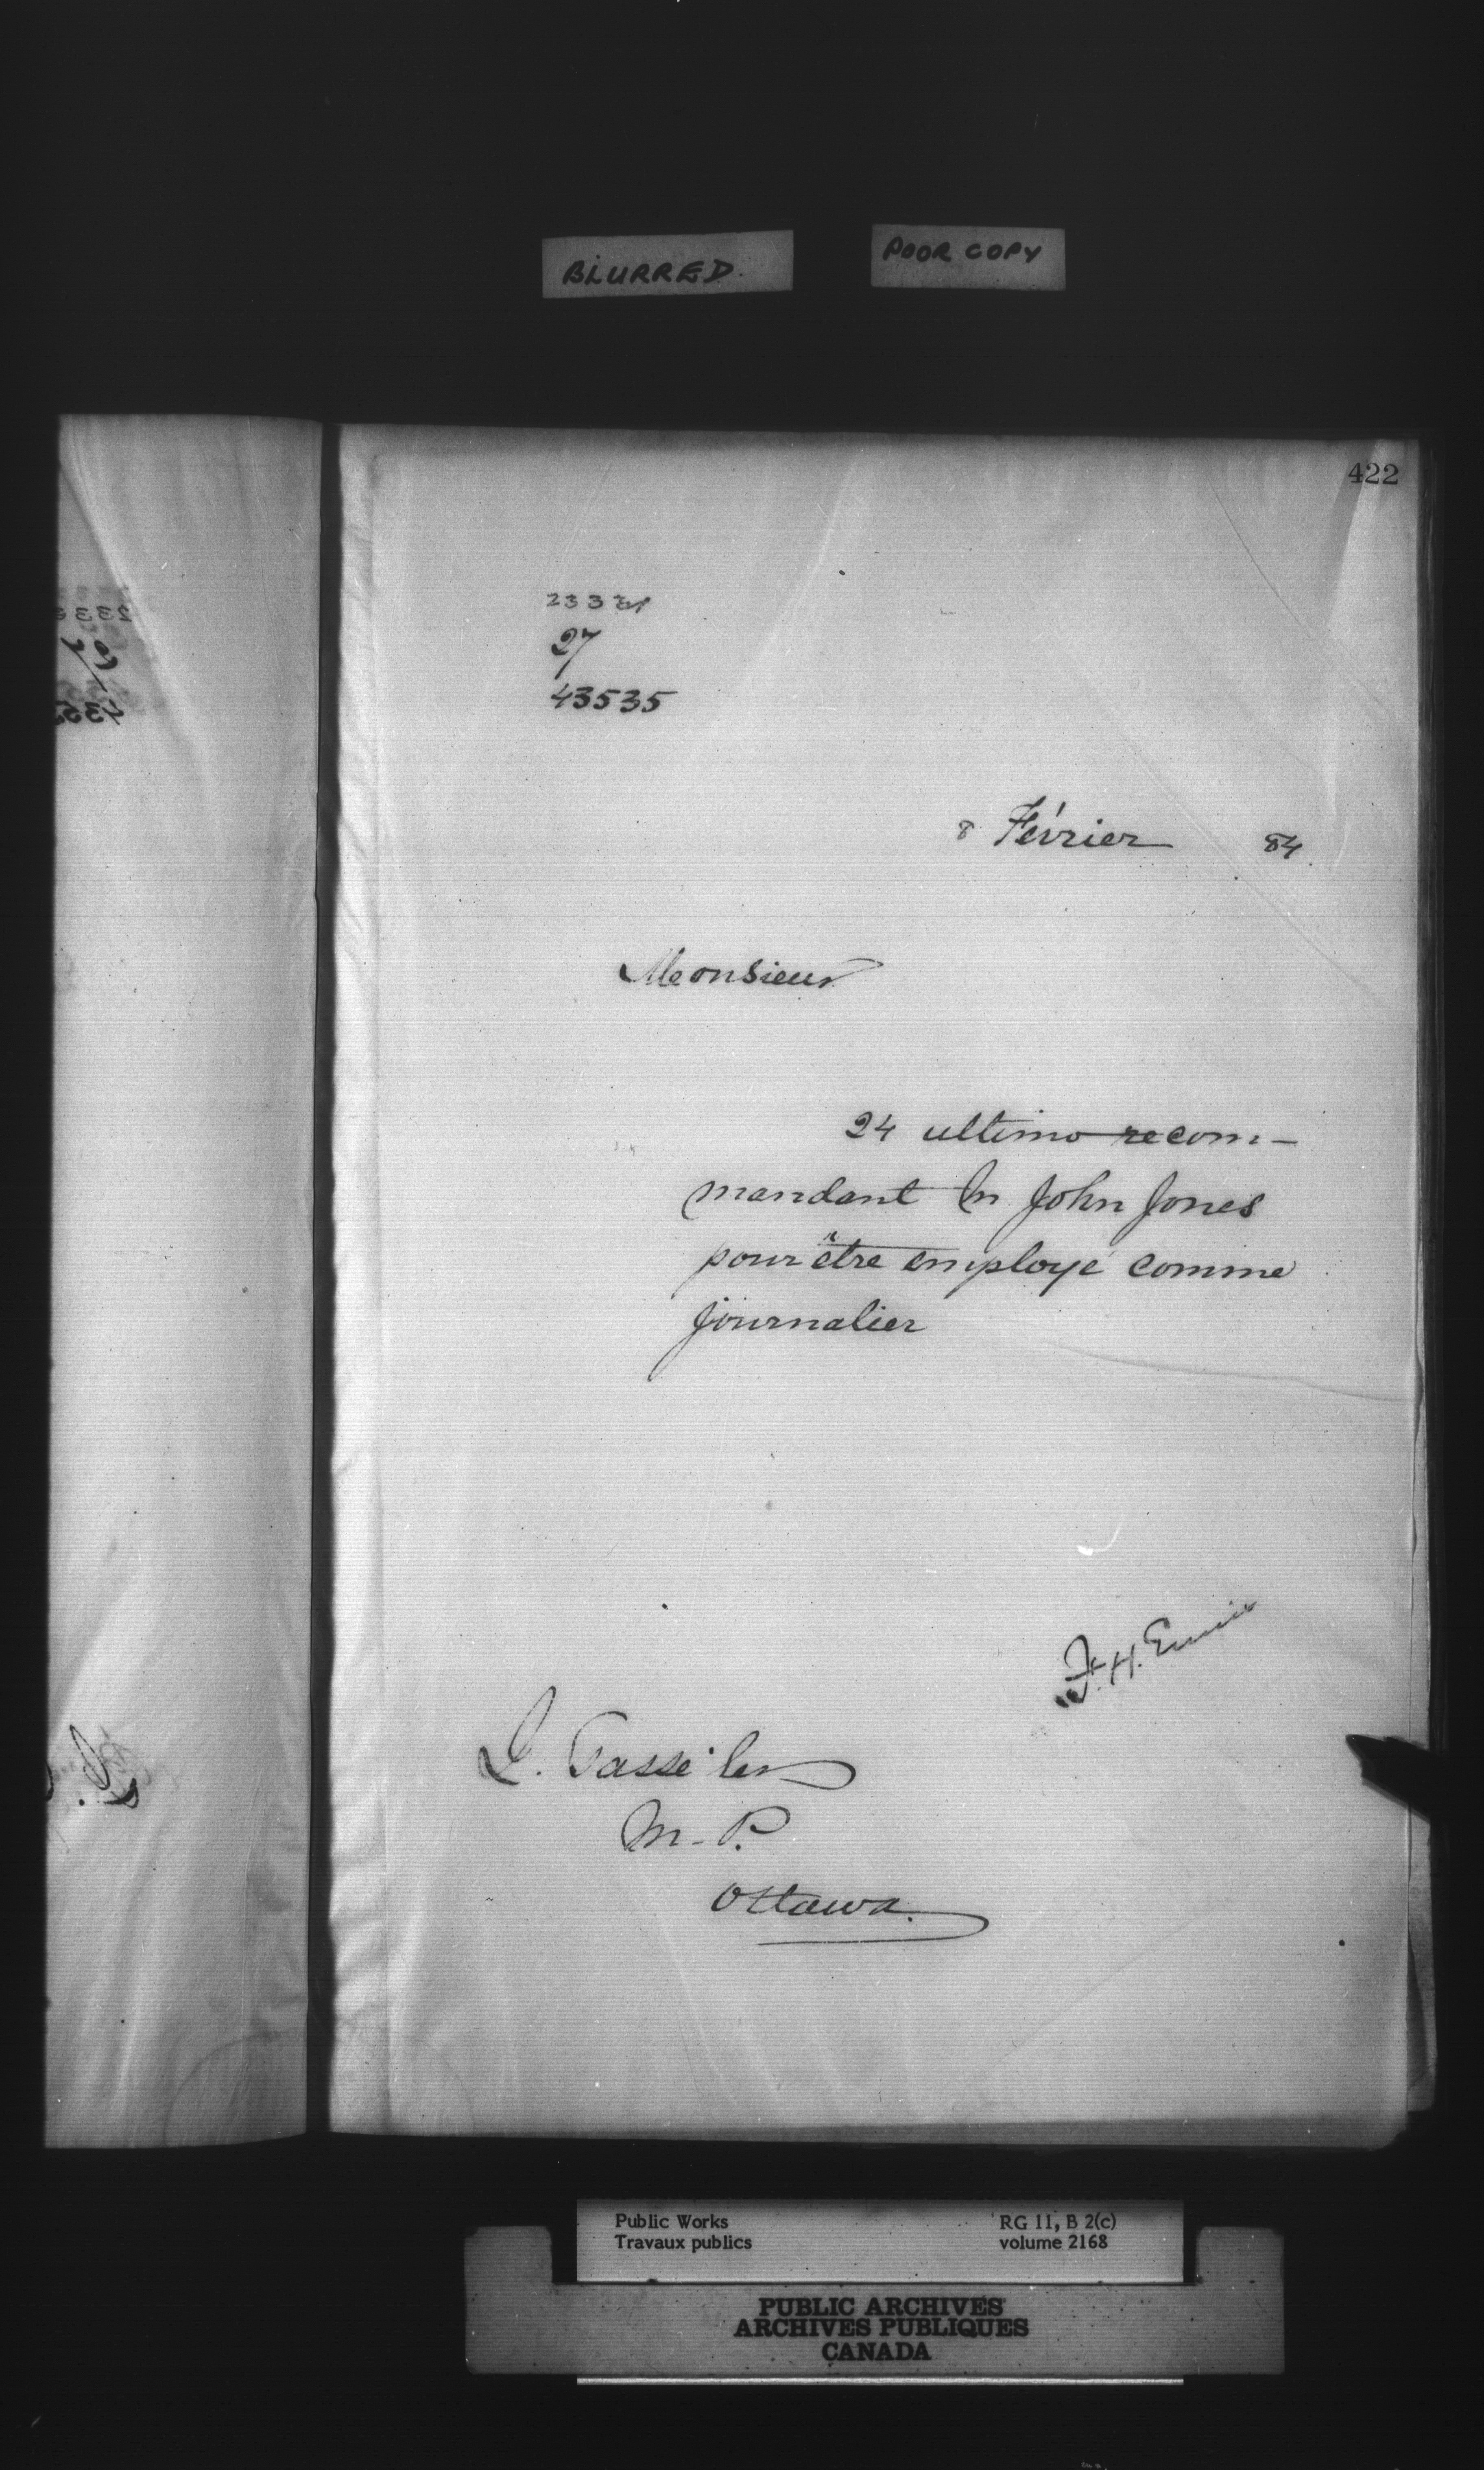 BLURRED.
POOR COPY
422
27
43535
8 Février 84.
Monsieur
24 ultimo recom-
mandant M. John Jones
pour être employé comme
journalier
F. H. Ennis
J. Tassé
M. P.
Ottawa.
Public Works
Travaux publics
RG 11, B 2(c)
volume 2168
PUBLIC ARCHIVES
ARCHIVES PUBLIQUES
CANADA